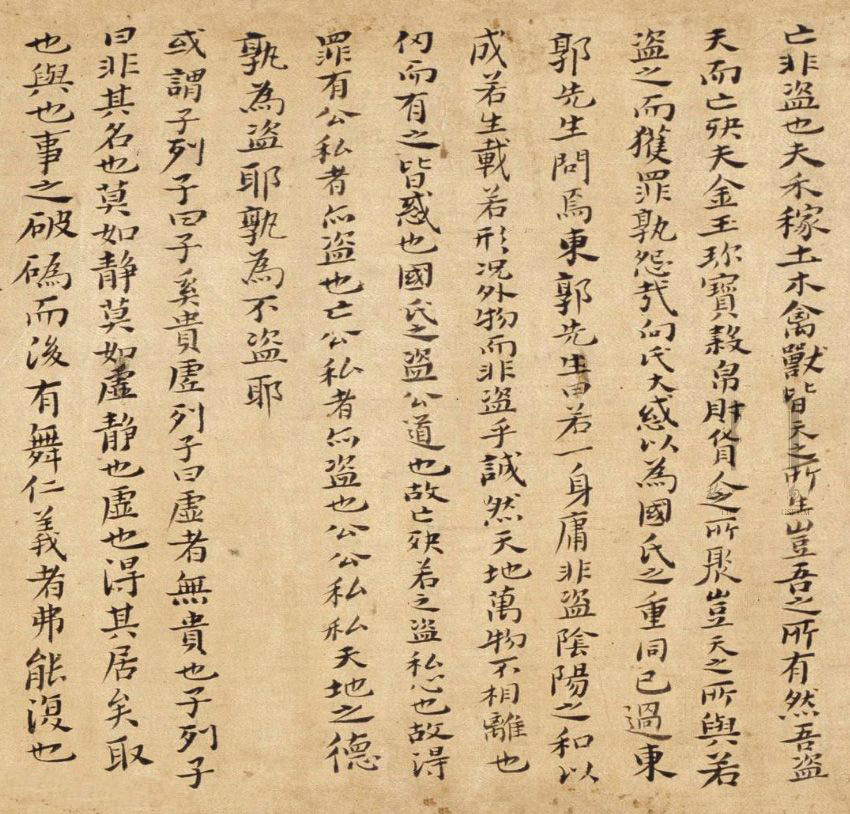 亡非盗也夫禾稼土木禽獸皆天之所生豈吾之所有然吾盗
天而亡殃夫金玉珎寶穀帛財貨人之所聚豈天之所與若
盗之而獲罪孰怨哉向氏大惑以為國氏之重同已過東
郭先生問焉東郭先生曰若一身庸非盗陰陽之和以
成若生載若形况外物而非盗乎誠然天地萬物不相離也
仞而有之皆惑也國氏之盗公道也故亡殃若之盗私心也故得
罪有公私者亦盗也亡公私者亦盗也公公私私天地之德
孰為盗耶孰為不盗耶
或謂子列子曰子奚貴虛列子曰虛者無貴也子列子
曰非其名也莫如静莫如虛静也虛也得其居矣取
也與也事之破䃣而後有舞仁義者弗能復也